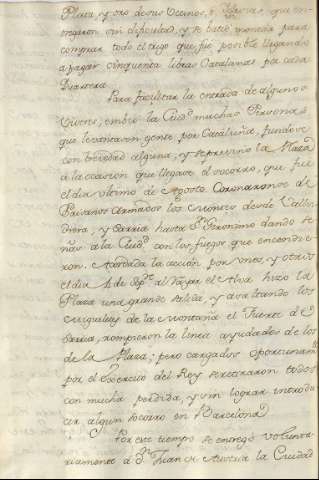 Plata, y oro de sus Vecinos, è Iglesias, que en-
tregaron sin dificultad, y se batiò moneda para
comprar todo el trigo que fue posible llegando
a pagar cinquenta libras Catalanas por cada
Quartera.
Para facilitar la entrada de algunos
Viveres, embiò la Ciud.ᵈ muchas Personas
que levantaron gente por Cataluña, juntose
con brevedad alguna, y se previno la Plaza
à la ocasion que llegase el socorro, que fue
el dia ultimo de Agosto. Coronaronse de
Paisanos Armados los Montes desde Vall
drera, y Sarria hasta S.ⁿ Geronimo dando se-
ñas a la Ciud.ᵈ con los fuegos que encendie-
ron. Acordada la acción por unos, y otros
el dia 4 de Sep.ᵉ al rayar el Alva hizo la
Plaza una grande salida, y avaltando los
Migueletes de la Montaña el Fuerte de
Sarria, rompieron la linea ayudados de los
de la Plaza; pero cargados oportunam.ᵗᵉ
por el Exercito del Rey se retiraron todos
con mucha perdida, y sin lograr introdu-
cir algun socorro en Barcelona.
Por este tiempo se entregò volunta-
riamente à D.ⁿ Juan de Austria la Ciudad